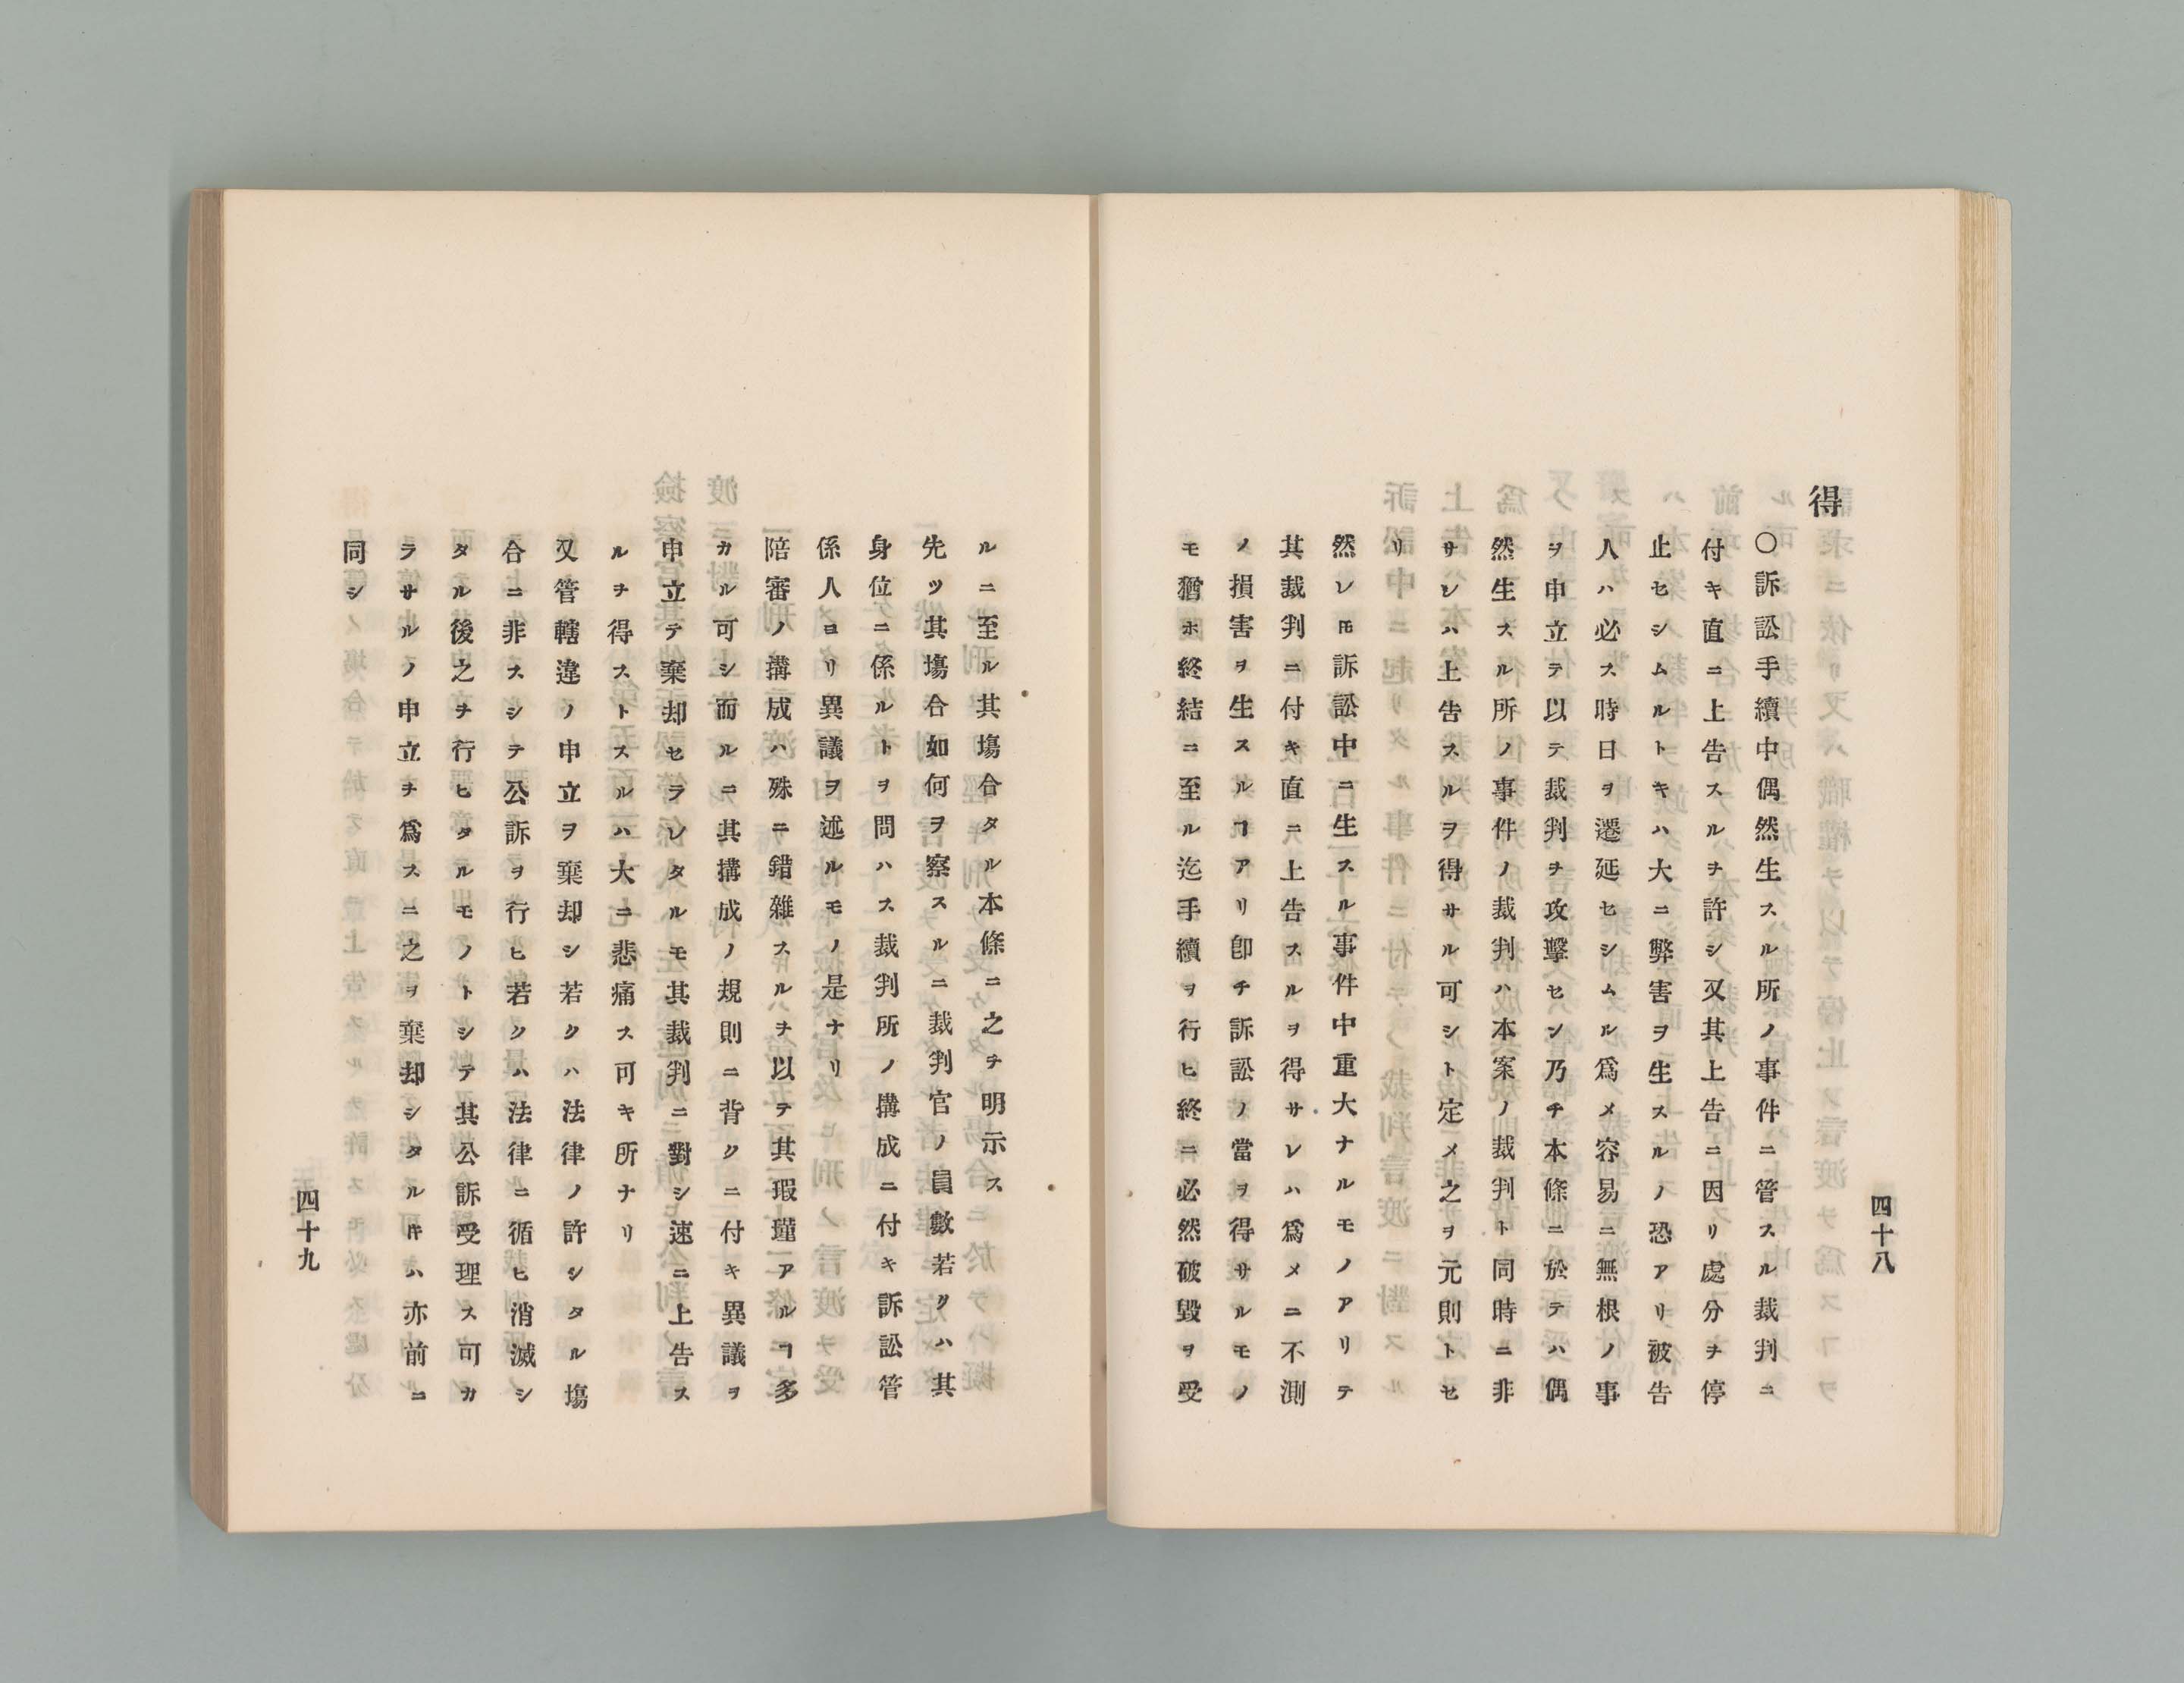 四十八
得
〇訴訟手續中偶然生スル所ノ事件ニ管スル裁判ニ
付キ直ニ上告スルヲ許シ又其上告ニ因リ處分ヲ停
止セシムルトキハ大ニ弊害ヲ生スルノ恐アリ被告
人ハ必ス時日ヲ遷延セシムル爲メ容易ニ無根ノ事
ヲ申立テ以テ裁判ヲ攻擊セン乃チ本條ニ於テハ偶
然生スル所ノ事件ノ裁判ハ本案ノ裁判ト同時ニ非
サレハ上告スルヲ得サル可シト定メ之ヲ元則トセ
リ
然レ𪜈訴訟中ニ生スル事件中重大ナルモノアリテ
其裁判ニ付キ直ニ上告スルヲ得サレハ爲メニ不測
ノ損害ヲ生スルヿアリ卽チ訴訟ノ當ヲ得サルモノ
モ猶ホ終結ニ至ル迄手續ヲ行ヒ終ニ必然破毀ヲ受
ルニ至ル其塲合タル本條ニ之ヲ明示ス
先ツ其塲合如何ヲ察スルニ裁判官ノ員數若クハ其
身位ニ係ルトヲ問ハス裁判所ノ搆成ニ付キ訴訟管
係人ヨリ異議ヲ述ルモノ是ナリ
陪審ノ搆成ハ殊ニ錯雜スルヲ以テ其瑕瑾アルヿ多
カル可シ而ルニ其搆成ノ規則ニ背クニ付キ異議ヲ
申立テ棄却セラレタルモ其裁判ニ對シ速ニ上告ス
ルヲ得ストスルハ大ニ悲痛ス可キ所ナリ
又管轄違ノ申立ヲ棄却シ若クハ法律ノ許シタル塲
合ニ非スシテ公訴ヲ行ヒ若クハ法律ニ循ヒ消滅シ
タル後之ヲ行ヒタルモノトシテ其公訴受理ス可カ
ラサルノ申立ヲ爲スニ之ヲ棄却シタルキハ亦前ニ
同シ
四十九